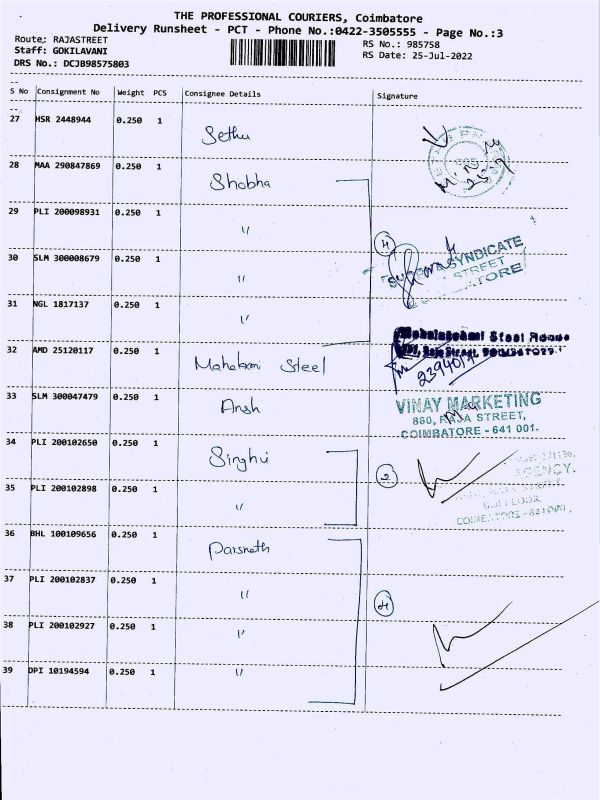 THE PROFESSIONAL COURIERS, Coimbatore
Delivery Runsheet - PCT - Phone No.:0422-3505555 - Page No.:3
Route: RAJASTREET
Staff: GOKILAVANI
DRS No.: DCJB98575803
RS No.: 985758
RS Date: 25-Jul-2022
S No Consignment No Weight PCS Consignee Details Signature
27 HSR 2448944 0.250 1 Sethu
28 MAA 290847869 0.250 1 Shobha
29 PLI 200098931 0.250 1 "
4
30 SLM 300008679 0.250 1 "
SYNDICATE
STREET
31 NGL 1817137 0.250 1 "
Mahalakshmi Steel House
32 AMD 25120117 0.250 1 Mahalaxmi Steel
33 SLM 300047479 0.250 1 Ansh
VINAY MARKETING
860, RAJA STREET,
COIMBATORE - 641 001.
34 PLI 200102650 0.250 1 Singhvi
2
AGENCY.
COIMBATORE - 641001.
35 PLI 200102898 0.250 1 "
36 BHL 100109656 0.250 1 Parsnath
37 PLI 200102837 0.250 1 "
4
38 PLI 200102927 0.250 1 "
39 DPI 10194594 0.250 1 "